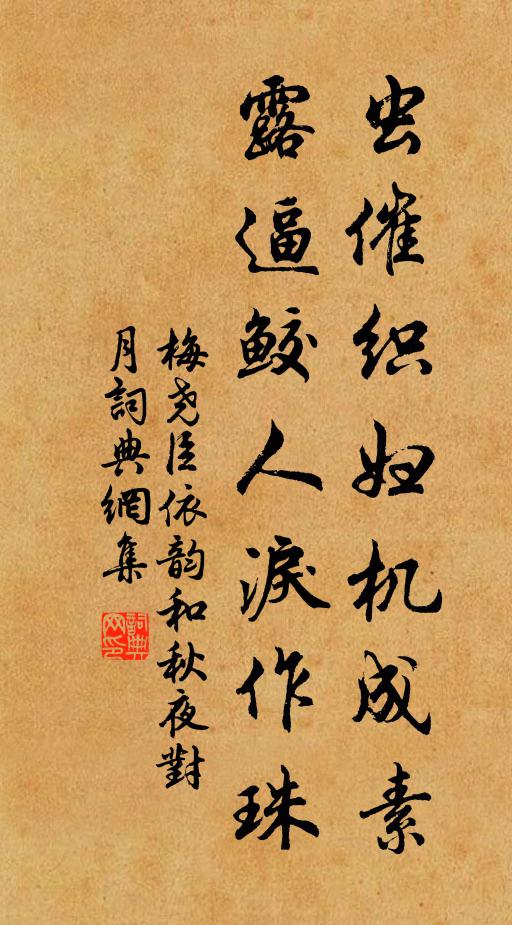 虫催织妇机成素
露逼鲛人淚作珠
梅尧臣依韵和秋夜對
月詞典網集
詞典网印